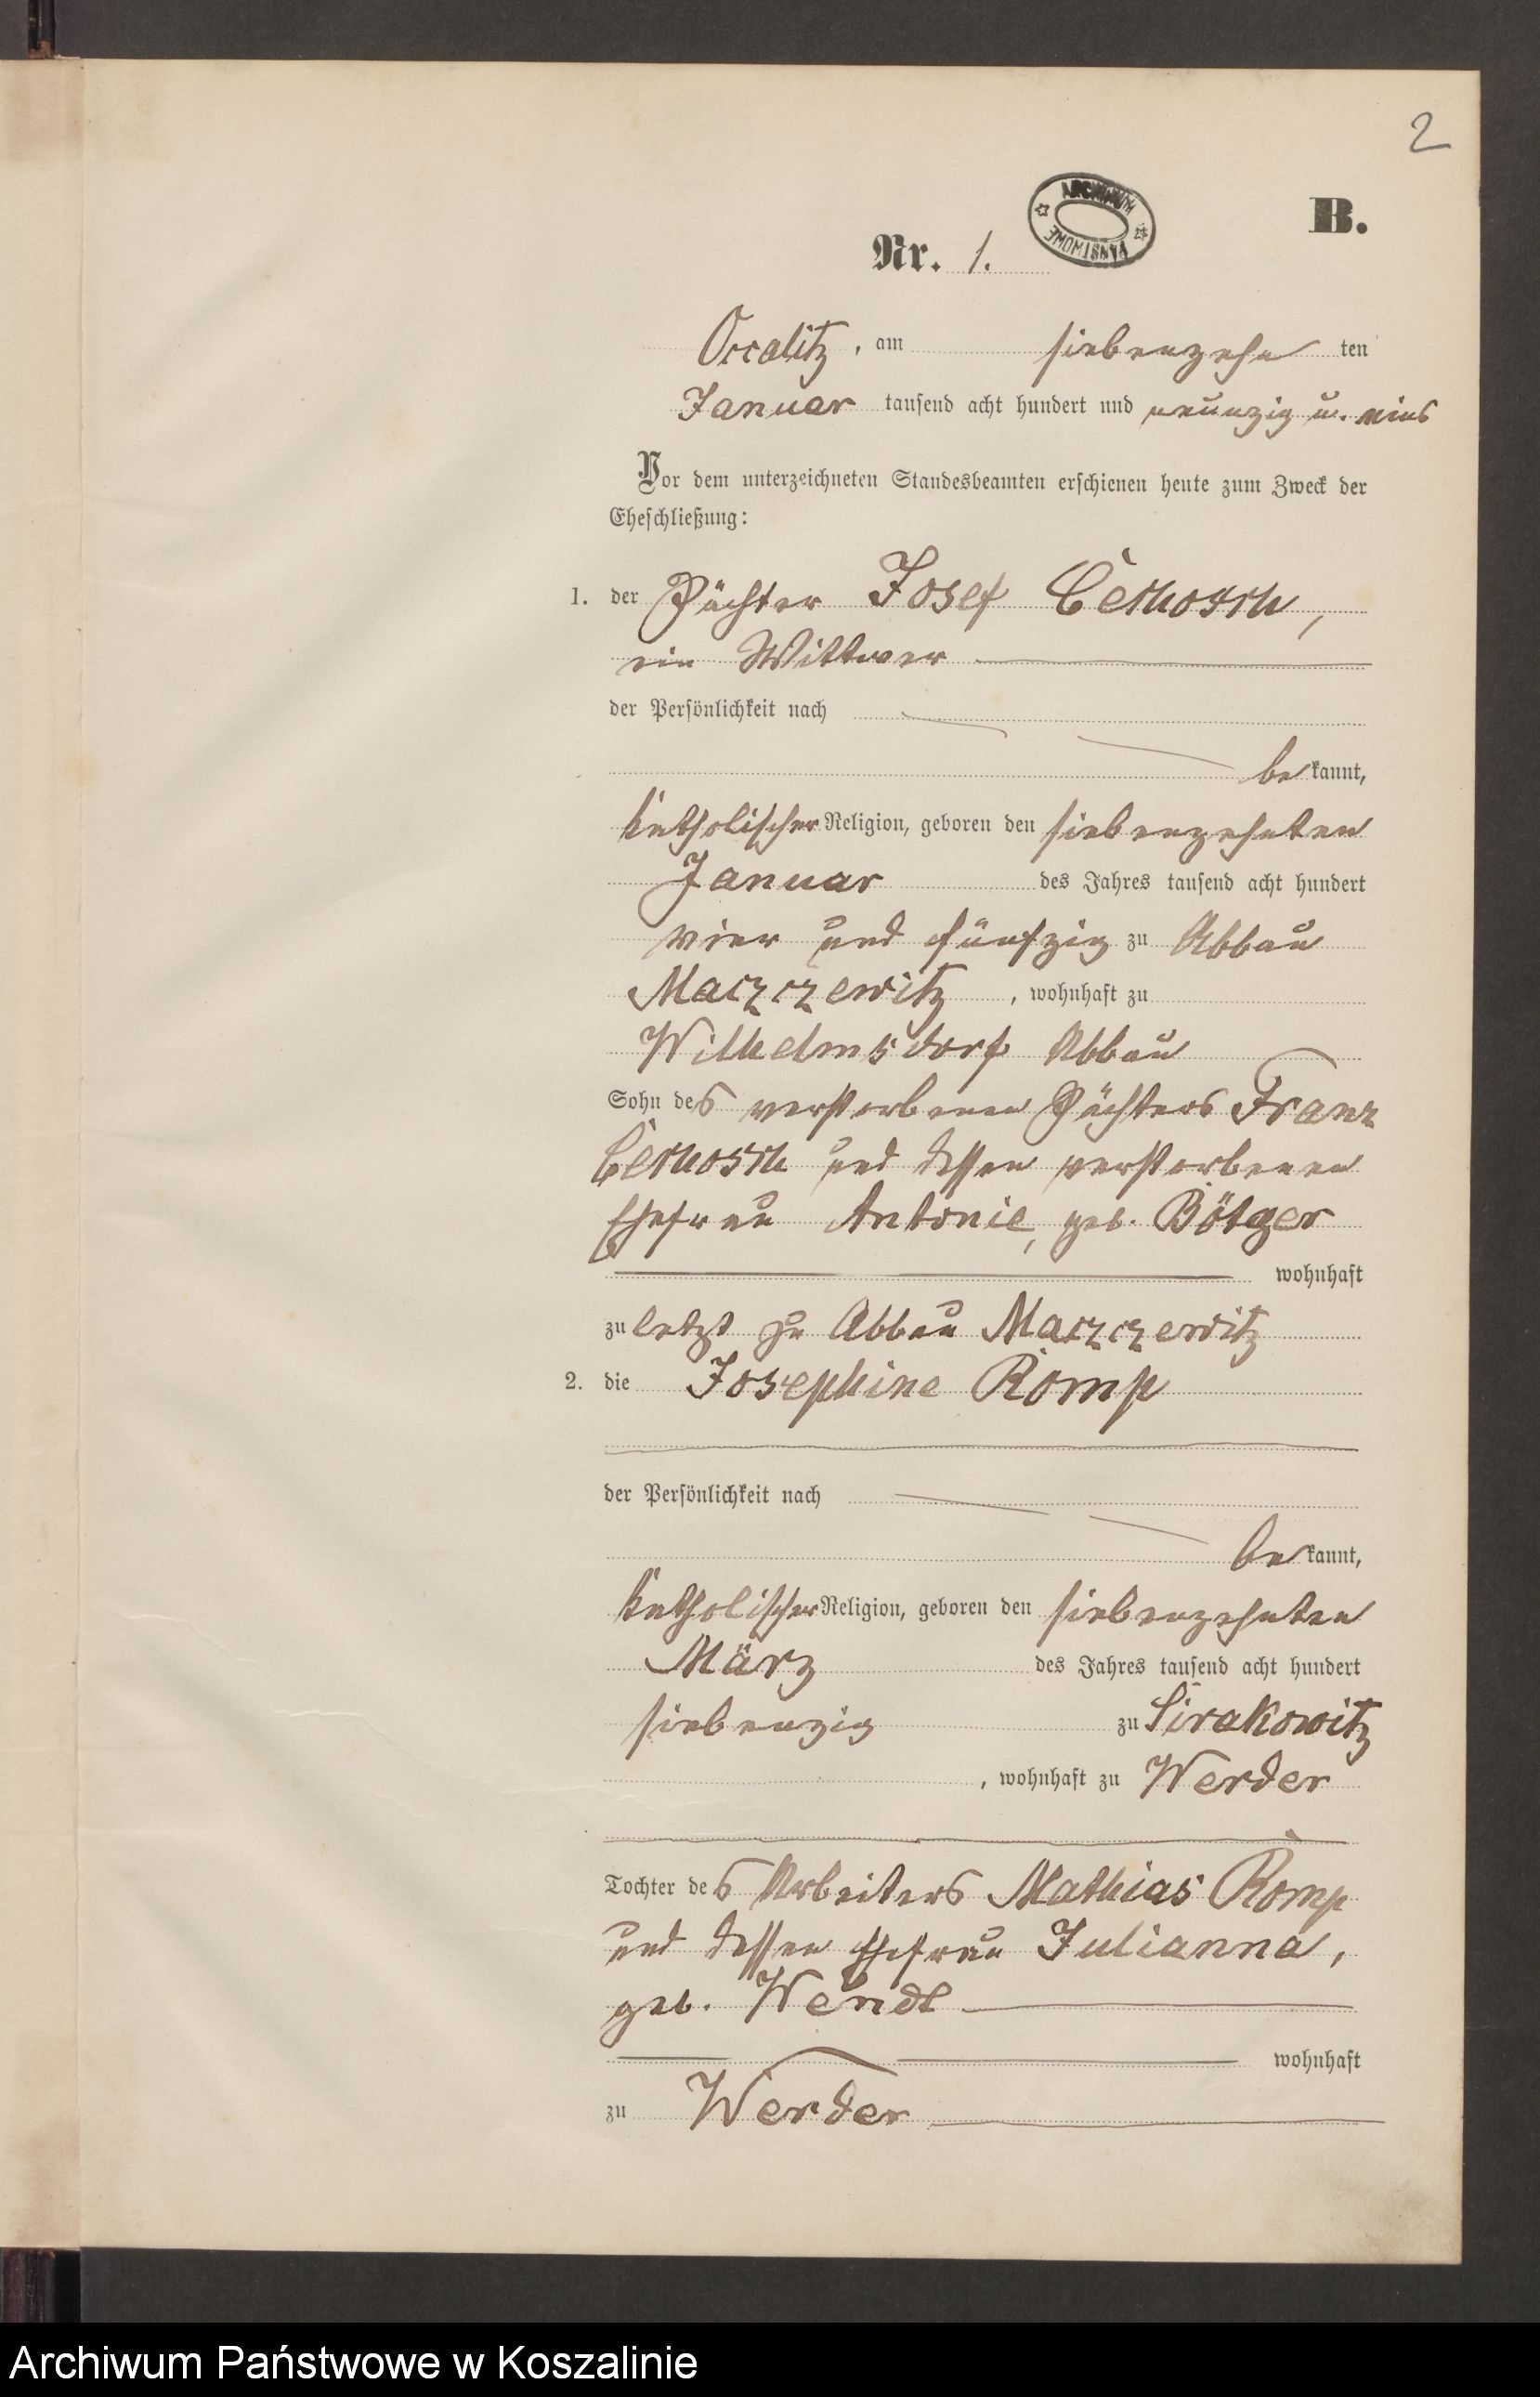 2
ARCHIWUM PAŃSTWOWE
B.
Nr. 1.
Occalitz, am siebenzehn ten
Januar tausend acht hundert und neunzig u. eins
Vor dem unterzeichneten Standesbeamten erschienen heute zum Zweck der
Eheschließung:
1. der Pächter Josef
ein Wittwer
der Persönlichkeit nach
be kannt,
katholischer Religion, geboren den siebenzehnten
Januar des Jahres tausend acht hundert
vier und fünfzig zu Abbau
Maczczewitz, wohnhaft zu
Wilhelmsdorf Abbau
Sohn des verstorbenen Pächters Franz
und dessen verstorbenen
Ehefrau Antonie, geb. Bötger
wohnhaft
zuletzt zu Abbau Maczczewitz
2. die Josephine Romp
der Persönlichkeit nach
be kannt,
katholischer Religion, geboren den siebenzehnten
März des Jahres tausend acht hundert
siebenzig zu Sirakowitz
, wohnhaft zu Werder
Tochter des Arbeiters Mathias Romp
und dessen Ehefrau Julianna,
geb. Wendt
wohnhaft
zu Werder
Archiwum Państwowe w Koszalinie